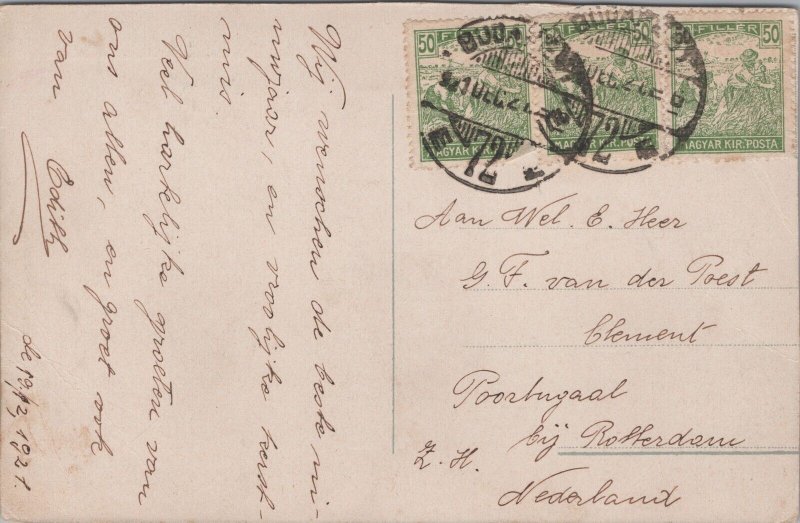 Wij wenschen de beste ni-
unwjaar, en vroolijke kerst-
mis.
Veel hartelijke groeten van
ons allen, en groet ook
van Edith
de 19/12, 1921.
50 FILLER
MAGYAR KIR. POSTA
FILLER
MAGYAR KIR. POSTA
FILLER 50
MAGYAR KIR. POSTA
BUDAPEST
921 DEC 21
72
BUDAPEST
DEC 21
72
Aan Wel. E. Heer
G. F. van der Poest
Clement
Poortugaal
bij Rotterdam
Z. H.
Nederland